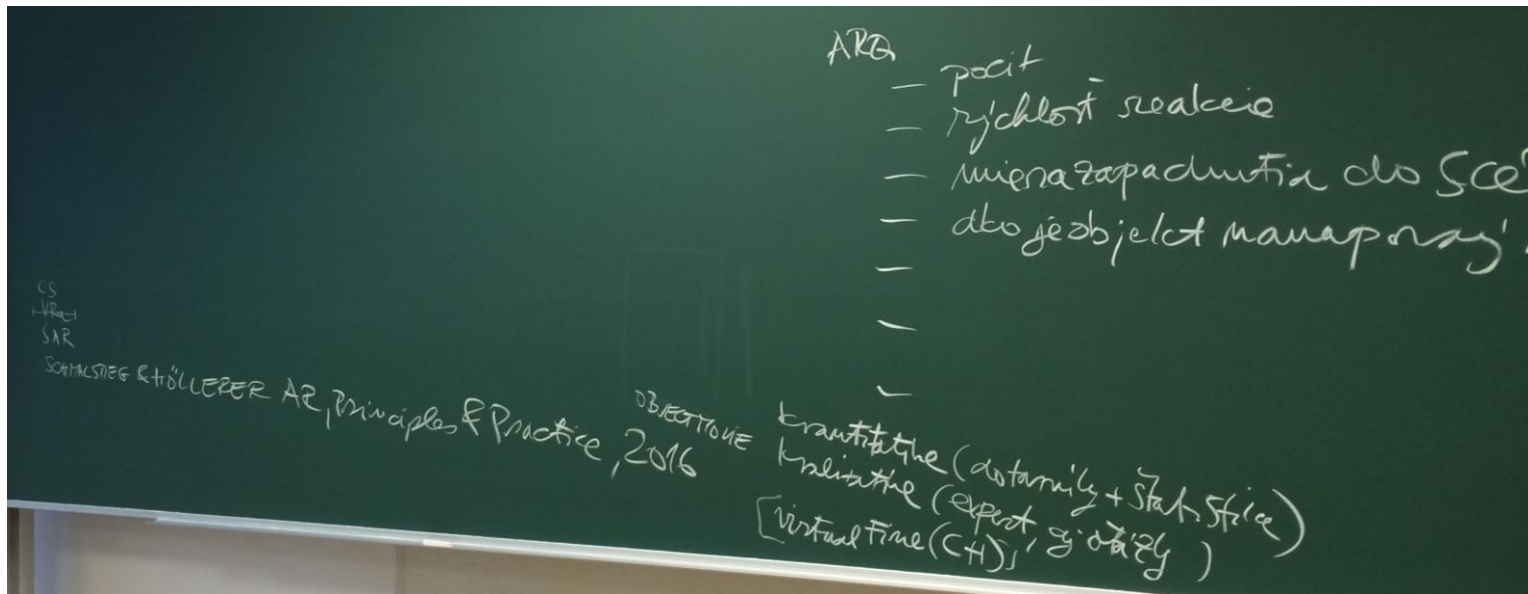 ARQ
— pocit
— rýchlosť reakcie
— miera zapadnutia do scé
— ako je objekt nanaporaný
—
—
—
CS
VR
SAR
SCHMALSTIEG & HÖLLERER AR, Principles & Practice, 2016
OBJECTIVE
kvantitatívne (dotazníky + štatistice)
kvalitatívne (expert, otázky)
[virtual time (CH),